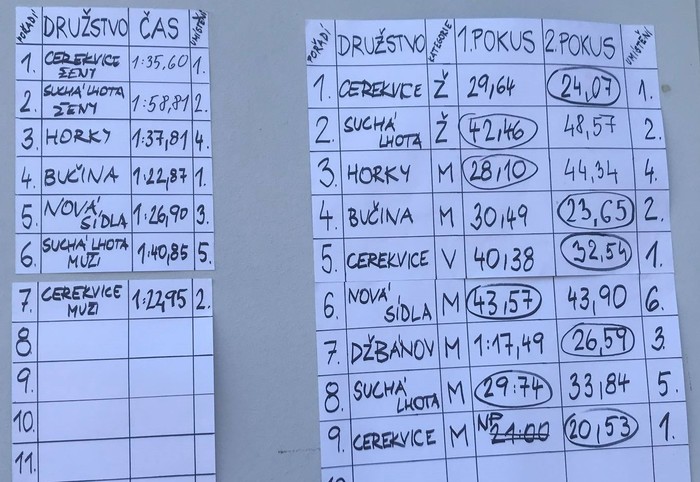 POŘADÍ DRUŽSTVO ČAS UMÍSTĚNÍ
1. CEREKVICE ŽENY 1:35,60 1.
2. SUCHÁ LHOTA ŽENY 1:58,81 2.
3. HORKY 1:37,81 4.
4. BUČINA 1:22,87 1.
5. NOVÁ SÍDLA 1:26,90 3.
6. SUCHÁ LHOTA MUŽI 1:40,85 5.
7. CEREKVICE MUŽI 1:22,95 2.
8.
9.
10.
11.
POŘADÍ DRUŽSTVO KATEGORIE 1.POKUS 2.POKUS UMÍSTĚNÍ
1. CEREKVICE Ž 29,64 24,07 1.
2. SUCHÁ LHOTA Ž 42,46 48,57 2.
3. HORKY M 28,10 44,34 4.
4. BUČINA M 30,49 23,65 2.
5. CEREKVICE V 40,38 32,54 1.
6. NOVÁ SÍDLA M 43,57 43,90 6.
7. DŽBÁNOV M 1:17,49 26,59 3.
8. SUCHÁ LHOTA M 29:74 33,84 5.
9. CEREKVICE M NP 21:00 20,53 1.